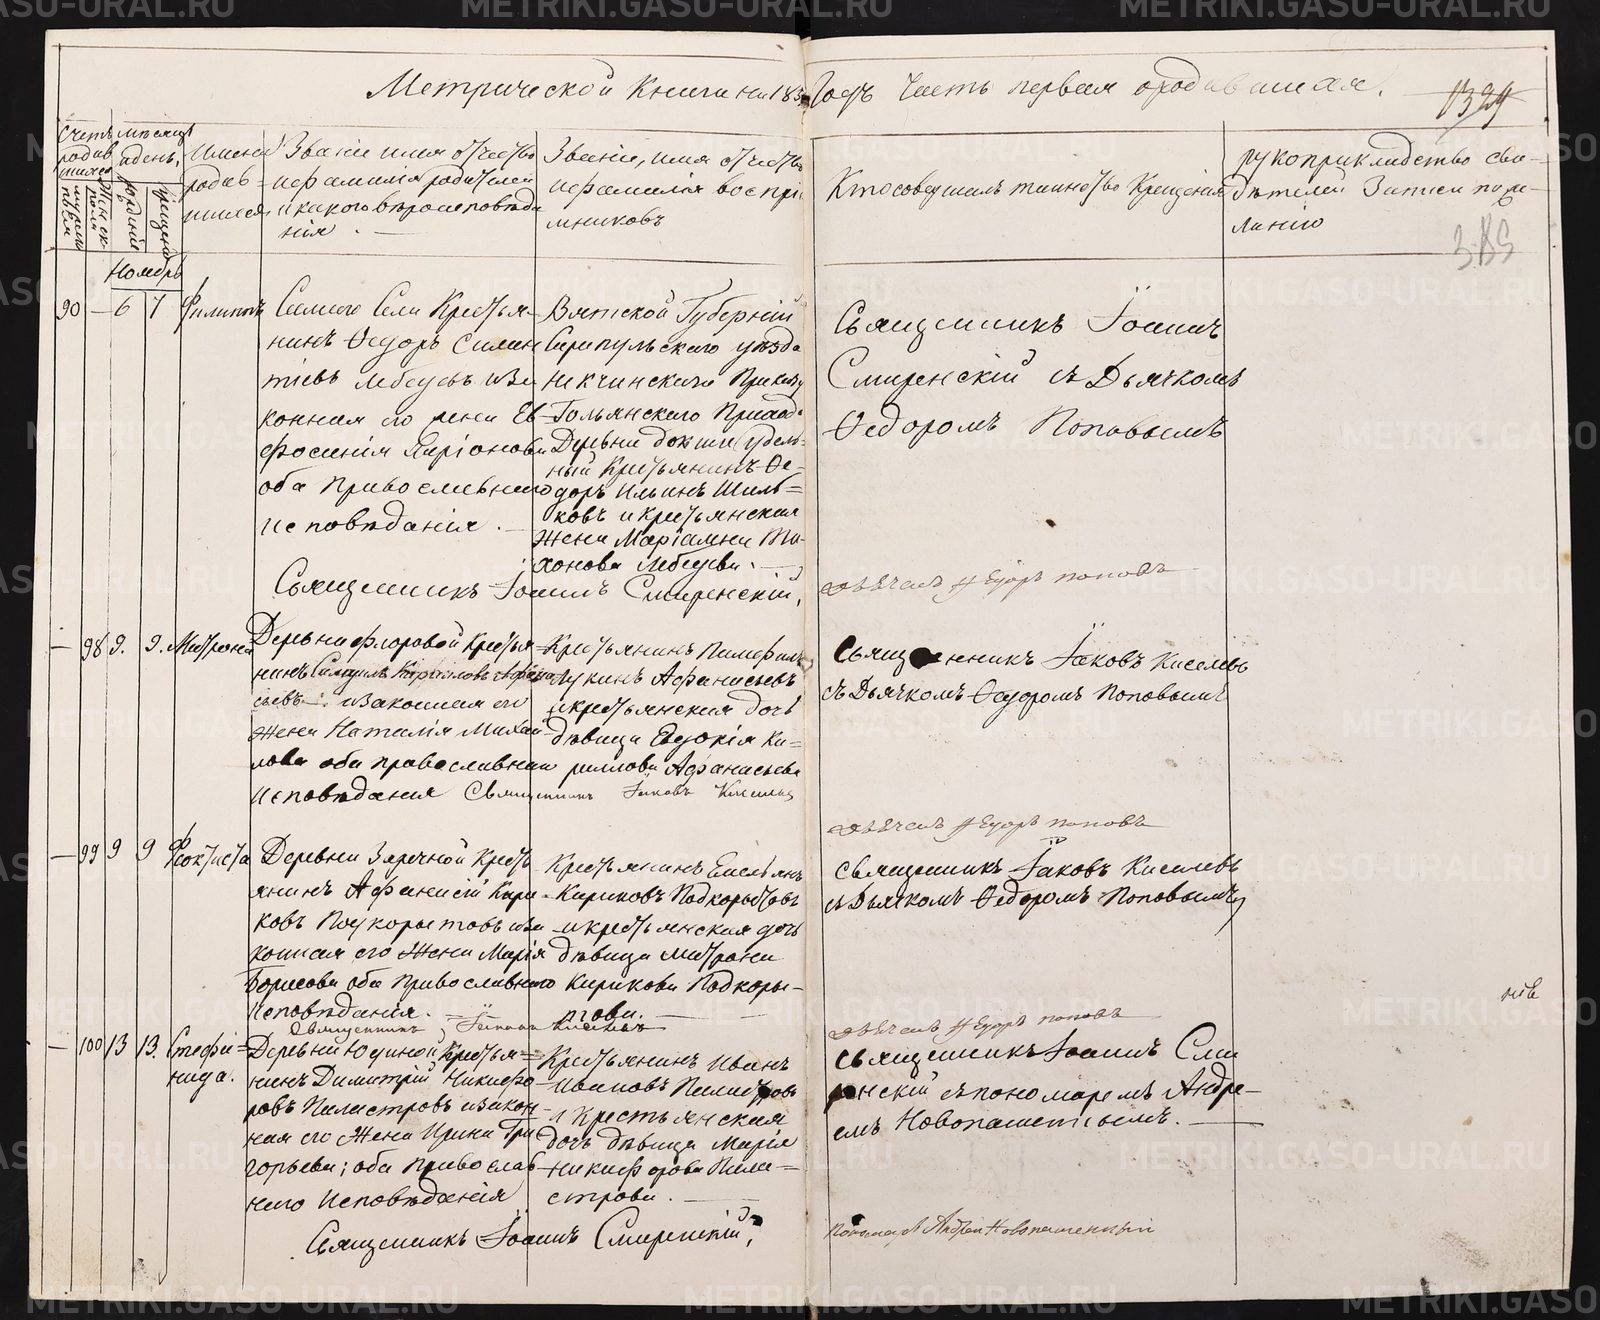 METRIKI.GASO-URAL.RU
Метрической Книги на 183 Годъ Часть первая ородившихся.
1324
Счетъ родившихся
мужеска пола
женска пола
Мѣсяцъ и день
рожденія
крещенія
Имена родившихся
Званіе имя отчество
и фамилія родителей
и какого вѣроисповѣда
нія
Званіе, имя отчество
и фамилія воспрі
емниковъ
Кто совершалъ таинство Крещенія
рукоприкладство сви-
дѣтелей записи по же-
ланію
385
Ноябрь
90 — 6 7 Филиппъ
Самого Села Крестья-
нинъ Ѳедоръ
Лебедевъ и за
конная его жена Ев-
фосинія
оба Православнаго
исповѣданія.
Вятской Губерніи
Сарапульскаго уѣзда
Гольянскаго Прихода
Деревни удель-
ный Крестьянинъ Ѳе-
доръ Ильинъ
ковъ и крестьянская
жена Маріамна Ти-
хонова Лебедева.
Священникъ Іоаннъ Смиренскій,
Священникъ Іоаннъ
Смиренскій съ Дьячкомъ
Ѳедоромъ Поповымъ
дьячекъ Ѳедоръ поповъ
— 98 9. 9. Матрона
Деревни Фроловой Крестья-
нинъ Самуилъ Кириловъ Афана
сьевъ и законная его
жена Наталія Михай-
лова оба православнаго
исповѣданія Священникъ Іаковъ Киселевъ
Крестьянинъ Памфилъ
Лукинъ Афанасьевъ
и крестьянская дочь
дѣвица Евдокія Ки-
риллова Афанасьева
Священникъ Іаковъ Киселевъ
съ Дьячкомъ Ѳедоромъ Поповымъ
дьячекъ Ѳедоръ поповъ
— 99 9 9 Феоктиста
Деревни Заречной Кресть
янинъ Афанасій Кири
ковъ Подкорытовъ и за
конная его Жена Марія
Борисова оба Православнаго
исповѣданія.
Священникъ Іаковъ Киселевъ
Крестьянинъ Емельянъ
Кириковъ Подкорытовъ
и крестьянская дочь
дѣвица Матрона
Кирикова Подкоры-
това.
Священникъ Іаковъ Киселевъ
съ Дьячкомъ Ѳедоромъ Поповымъ
дьячекъ Ѳедоръ поповъ
— 100 13 13. Стефа-
нида.
Деревни Юдиной Крестья-
нинъ Димитрій Никифо-
ровъ Пилистровъ и закон-
ная его Жена Ирина Гри
горьева; оба Православ-
наго исповѣданія
Крестьянинъ Иванъ
Ивановъ Пилистровъ
и Крестьянская
дочь дѣвица Марія
Никифорова Пили-
строва.
Священникъ Іоаннъ Смиренскій,
Священникъ Іоаннъ Сми
ренскій съ пономаремъ Андре-
емъ Новопашенскимъ.
Пономарь Андрей Новопашенный